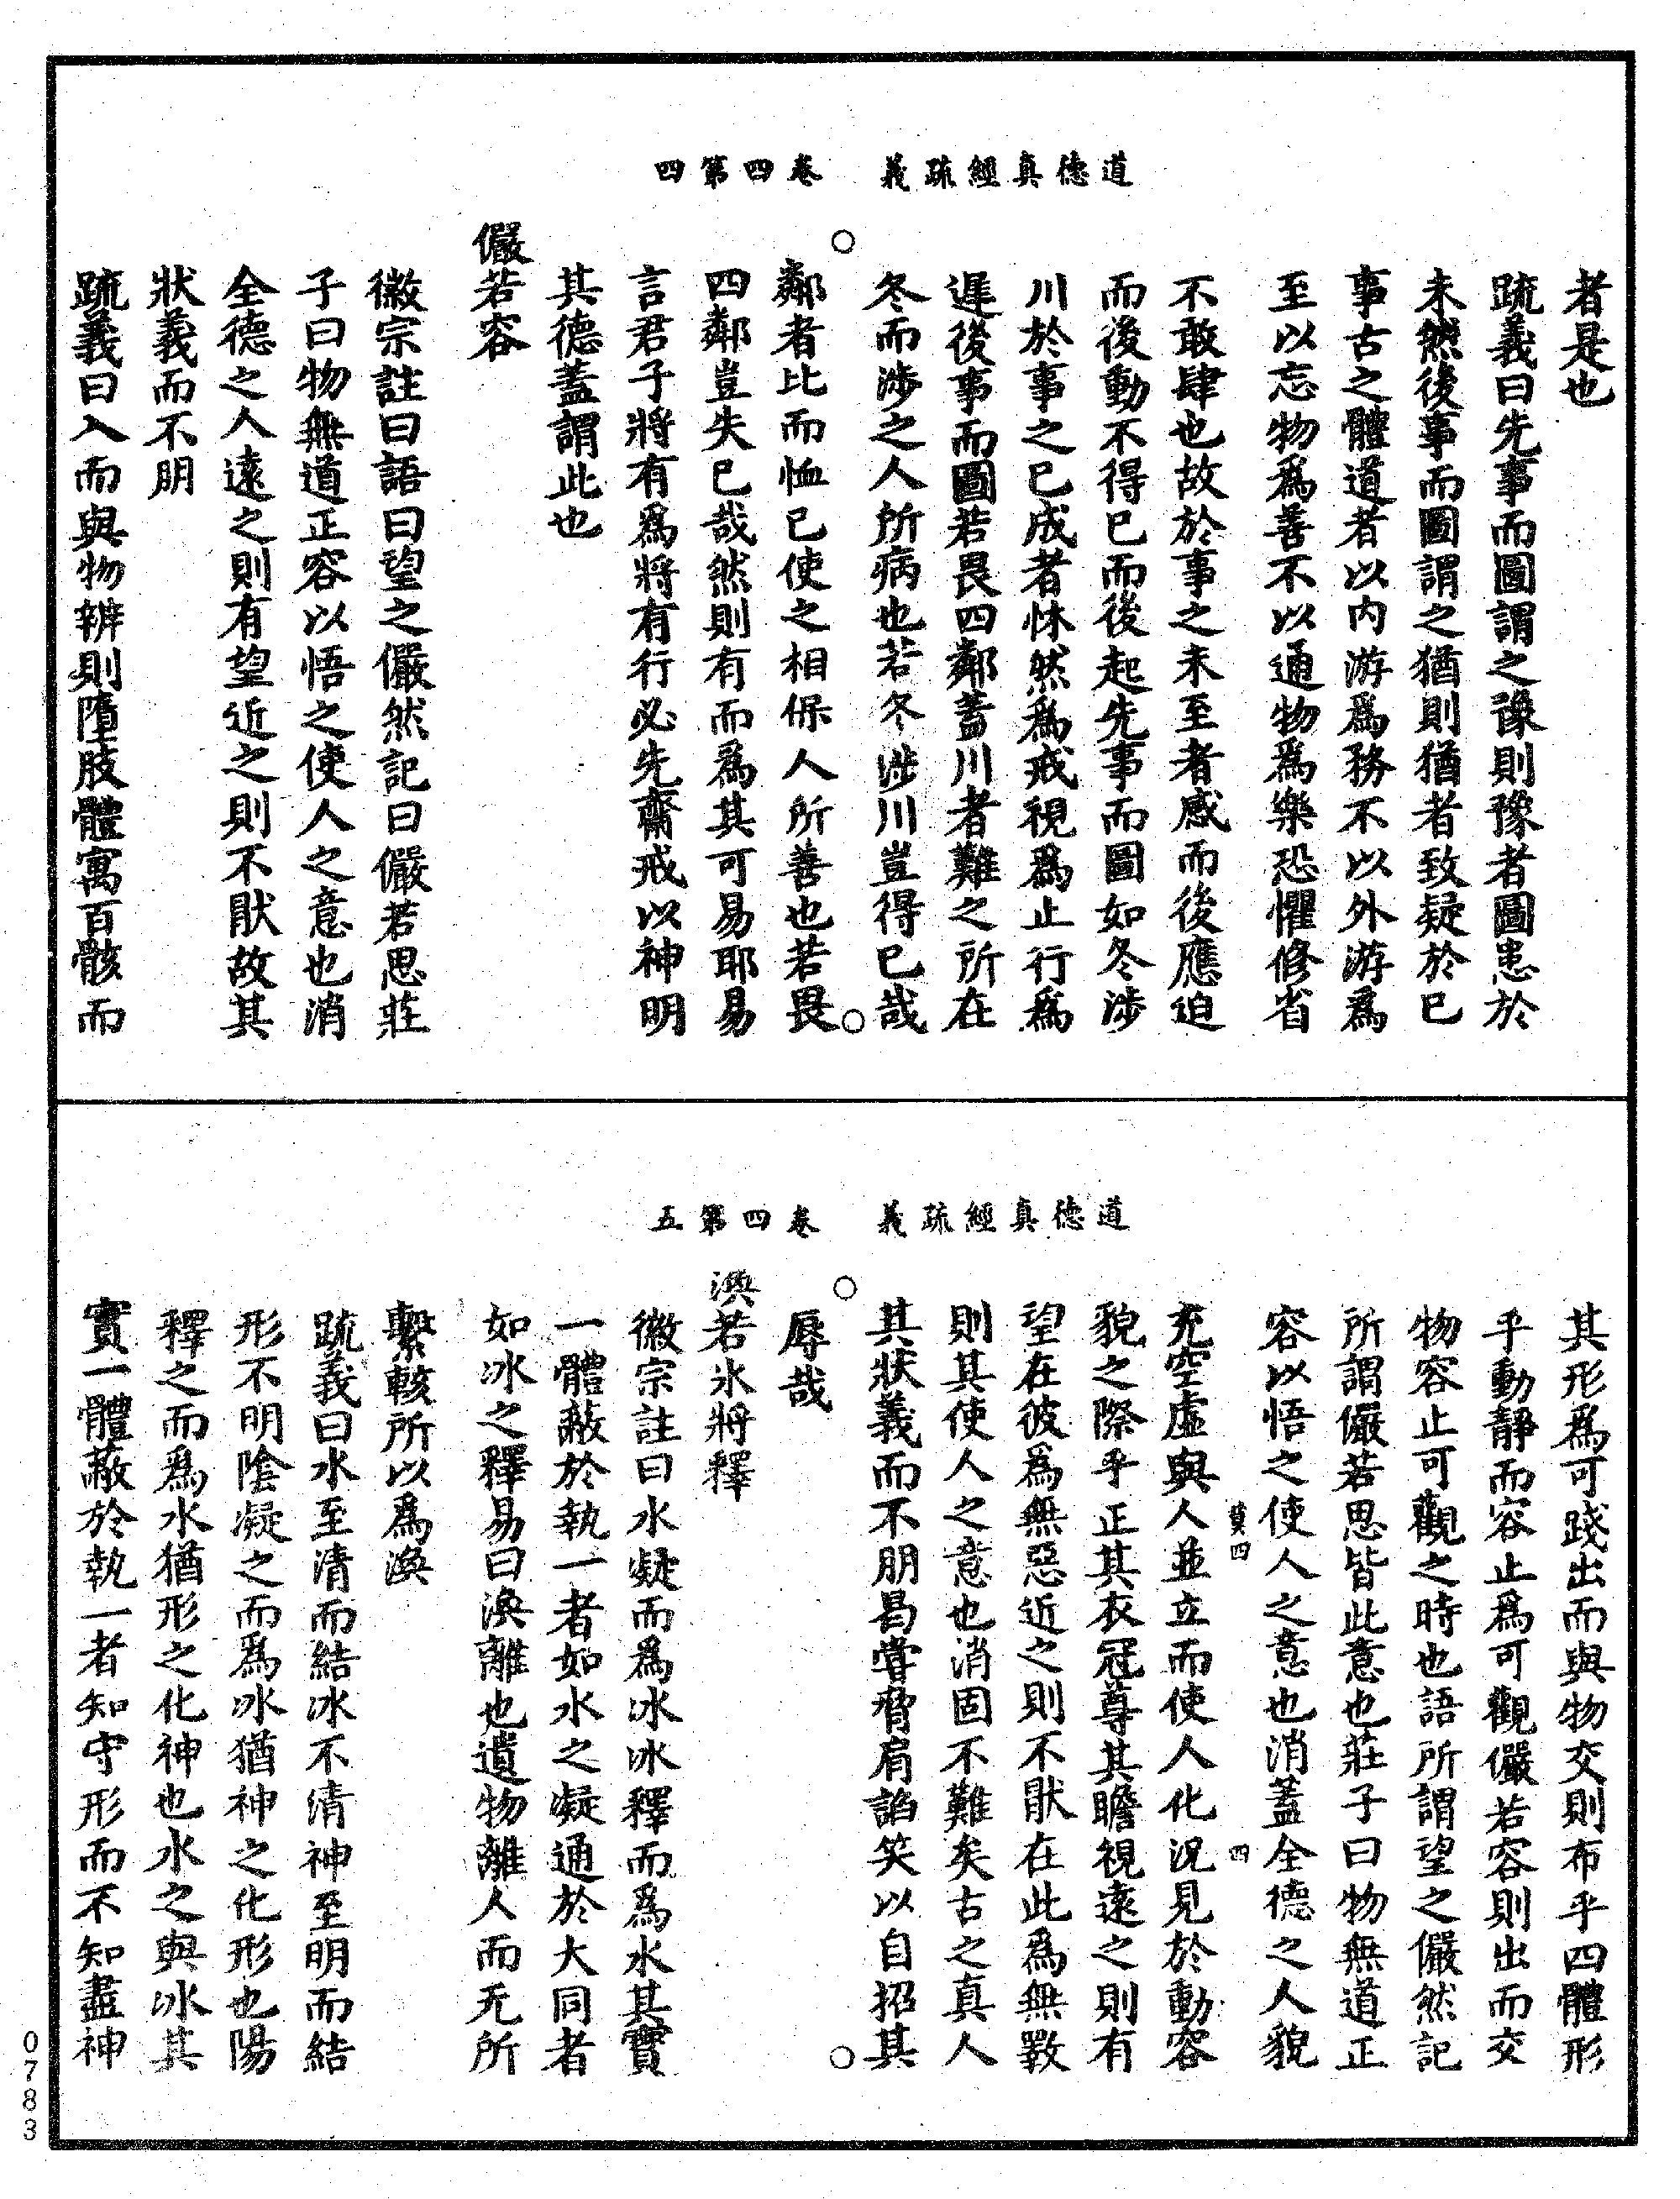 道德真經疏義　卷四第四
者是也
疏義曰先事而圖謂之豫則豫者圖患於
未然後事而圖謂之猶則猶者致疑於已
事古之體道者以内游為務不以外游為
至以忘物為善不以通物為樂恐懼修省
不敢肆也故於事之未至者感而後應迫
而後動不得已而後起先事而圖如冬涉
川於事之已成者怵然為戒視為止行為
遲後事而圖若畏四鄰蓋川者難之所在
冬而涉之人所病也若冬涉川豈得已哉
鄰者比而恤已使之相保人所善也若畏
四鄰豈失已哉然則有而為其可易耶易
言君子將有為將有行必先齋戒以神明
其德蓋謂此也
儼若容
徽宗註曰語曰望之儼然記曰儼若思莊
子曰物無道正容以悟之使人之意也消
全德之人遠之則有望近之則不猒故其
狀義而不朋
疏義曰入而與物辨則墮肢體寓百骸而
道德真經疏義　卷四第五
其形為可踐出而與物交則布乎四體形
乎動靜而容止為可觀儼若容則出而交
物容止可觀之時也語所謂望之儼然記
所謂儼若思皆此意也莊子曰物無道正
容以悟之使人之意也消蓋全德之人貌
莫四　四
充空虛與人並立而使人化況見於動容
貌之際乎正其衣冠尊其瞻視遠之則有
望在彼為無惡近之則不猒在此為無斁
則其使人之意也消固不難矣古之真人
其狀義而不朋曷嘗脅肩諂笑以自招其
辱哉
渙若氷將釋
徽宗註曰水凝而為冰冰釋而為水其實
一體蔽於執一者如水之凝通於大同者
如冰之釋易曰渙離也遺物離人而无所
繫輆所以為渙
疏義曰水至清而結冰不清神至明而結
形不明陰凝之而為冰猶神之化形也陽
釋之而為水猶形之化神也水之與冰其
實一體蔽於執一者知守形而不知盡神
0783